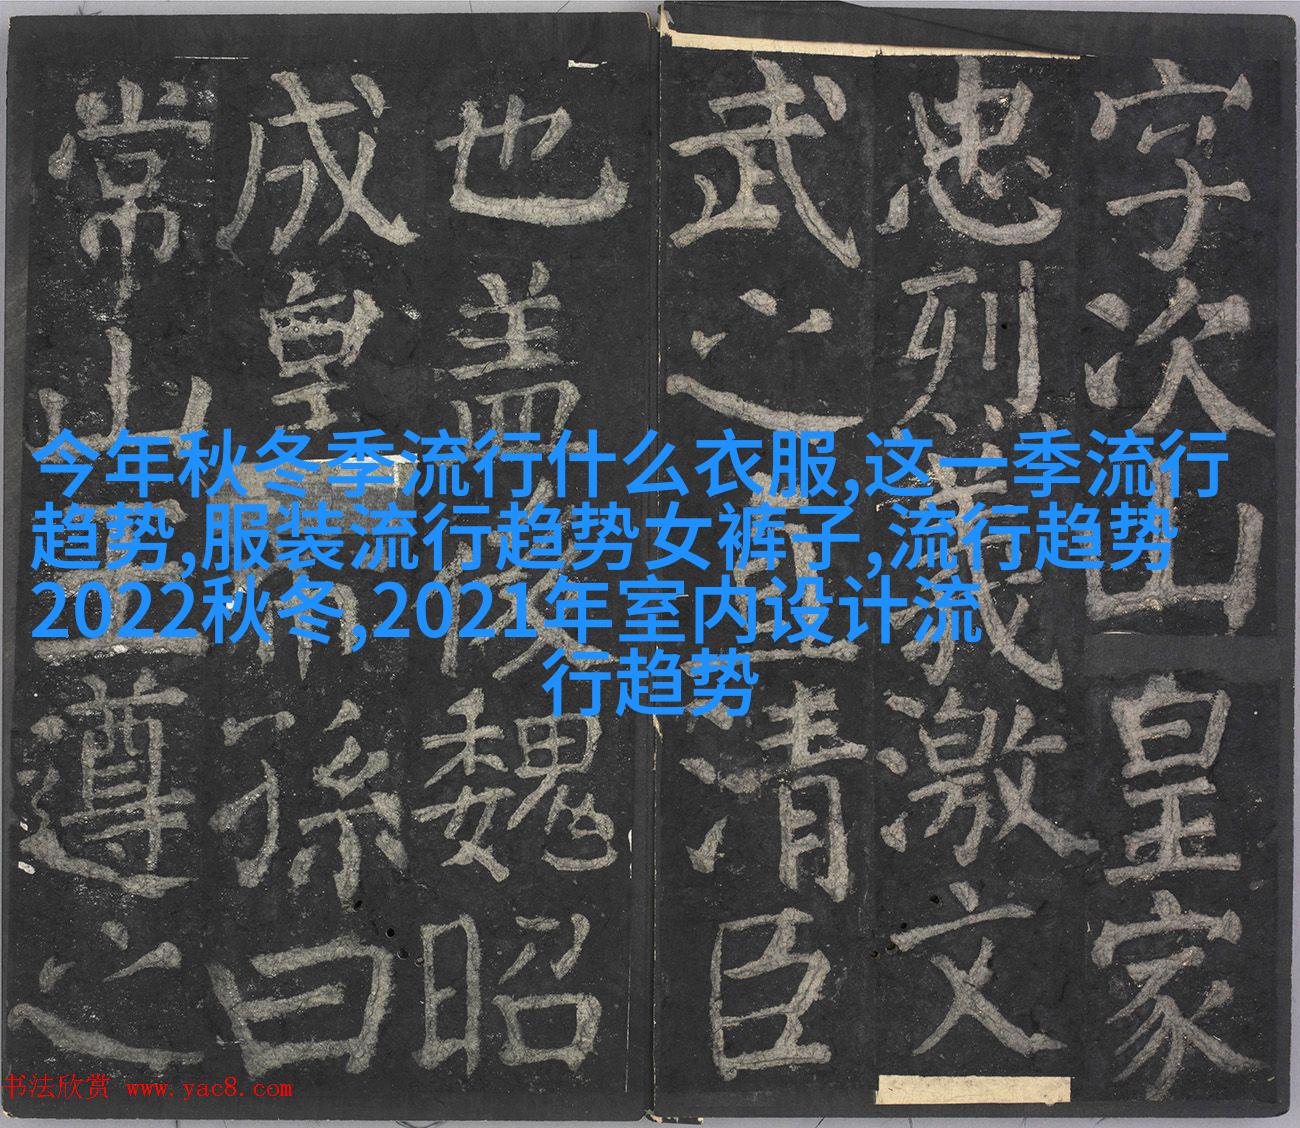 字次山皇家
忠烈義激文
武之直清臣
也盖後魏昭
成皇帝孫曰
常山王遵之
今年秋冬季流行什么衣服,这一季流行
趋势,服装流行趋势女裤子,流行趋势
2022秋冬,2021年室内设计流
行趋势
书法欣赏 www.yac8.com